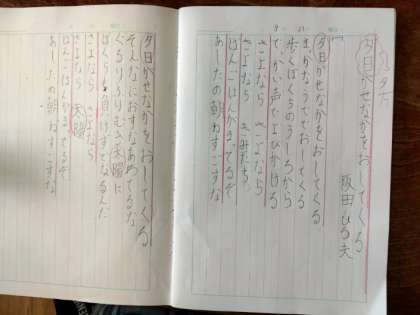 夕方
夕日がせなかをおしてくる
阪田ひろ夫
夕日がせなかをおしてくる
まっかなうででおしてくる
歩くぼくらのうしろから
でっかい声でよびかける
さよなら さよなら
さよなら きみたち
ばんごはんがまってるぞ
あしたの朝ねすごすな
夕日がせなかをおしてくる
そんなにおすなあわてるな
ぐるりふりむき太陽に
ぼくらも負けずどなるんだ
さよなら さよなら
さよなら 太陽
ばんごはんがまってるぞ
あしたの朝ねすごすな